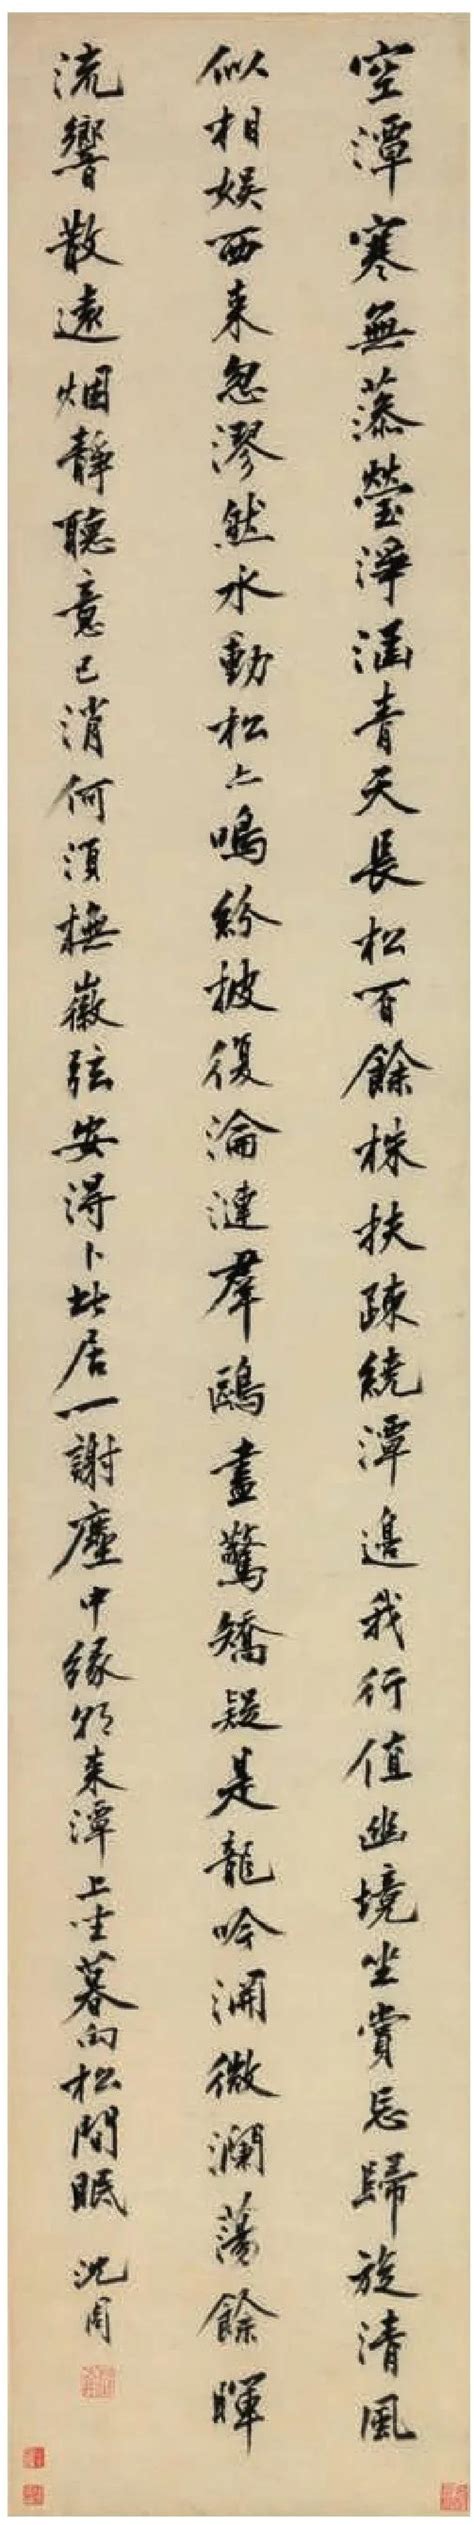 空潭寒無藻瑩淨涵青天長松百餘株扶疎繞潭邊我行值幽境坐賞忘歸旋清風
似相娛西来忽漻然水動松亦鳴紛披復淪漣羣鷗盡驚矯疑是龍吟淵微瀾蕩餘暉
流響散遠烟靜聽意已消何須撫徽弦安得卜此居一謝塵中緣朝来潭上坐暮向松間眠 沈周